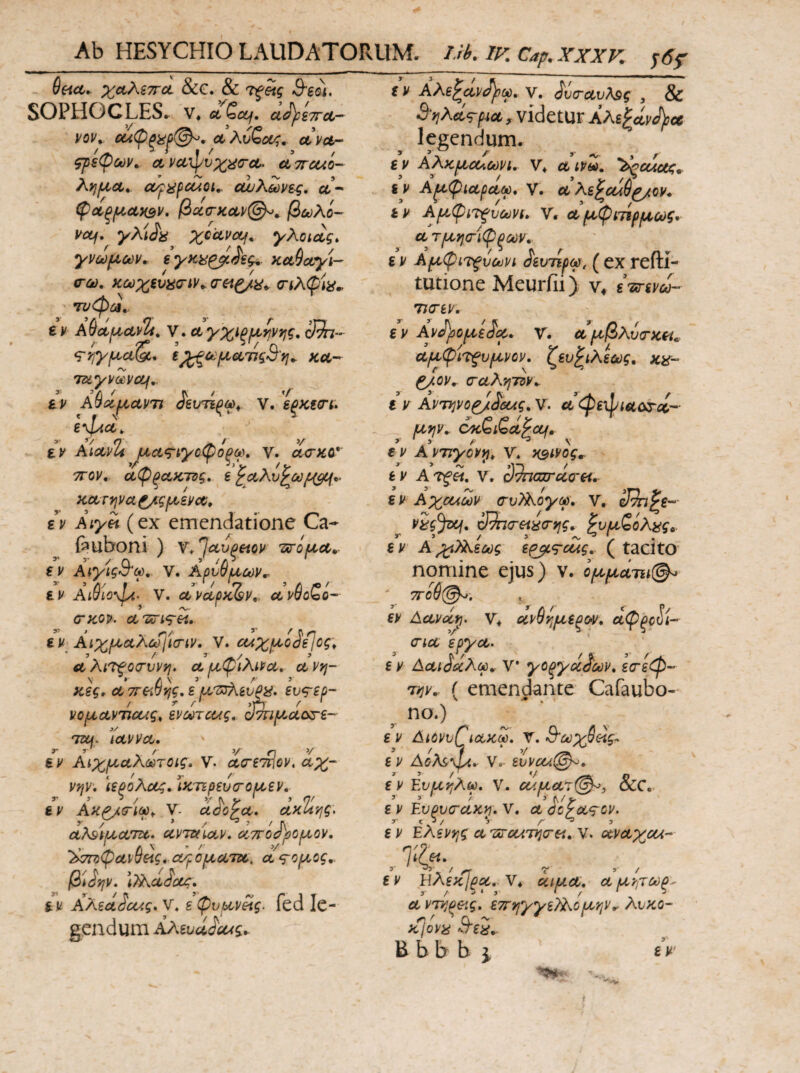 Ab HESYCHIO LAUDATORUM. Lib. IV. Cap. XXXV. 565
θεια. χαλεπα &c. & τρεις θεοι.
SOPHOCLES. v. αζαι. αδρεπα-
νον. αιφρερος. αλυζας. ανα-
στρεφων. αναψυχουσα. απαιο-
λημα. αρχραιοι. αυλωνες. α-
φαρμακον. βασκανος. βωλο-
ναι. γλιδου χοαναι. γλοιας.
γνωμων. εγκουραδες. καθαγι-
σω. κωχευουσιν. σειριου. σιλφιου.
τυφω.
εν Αθαμαντι. v. αγχιρμηνης. επι-
στηγματος. εχρωματισθη. κα-
ταγνωναι.
εν Αθαμαντι δευτερω. v. ερκεσι.
εψια.
εν Αιαντι μαστιγοφορω. v. ασκο-
πον. αφρακτος. εξαλυξωμαι.
κατηναρισμενας.
εν Αιγει (ex emendatione Ca-
fauboni ) v. ταυρειον πομα.
εν Αιγισθω. v. Αρυθμων.
εν Αιθιοψι. v. αναρκτον. ανθοβο-
σκον. απιστει.
εν Αιχμαλωτισιν. v. αιχμοδετος.
αλιτροσυνη. αμφιλινα. ανη-
κες. απειθης. εμπλευρου. ευστερ-
νομαντιαις. ενωταις. επιμασσε-
ται. ιαννα.
εν Αιχμαλωτοις. v. ασεπτον. αχ-
νην. ιερολας. ικτερευσομεν.
εν Ακρισιω. v. αδοξα. ακτιης.
αλειματα. ανταιαν. αποδρομον.
αποφανθεις. αρωματα. αστομος.
βιδην. ιλλαδας.
εν Αλεαδαις. v. εφυμνεις. fed le-
gendum Αλευαδαις.
εν Αλεξανδρω. v. δυσαυλος , &
θηλαστρια, videtur Αλεξανδρα
legendum.
εν Αλκμαιωνι. v. αινω. εραιας.
εν Αμφιαραω. v. αλεξαιθριον.
εν Αμφιτρυωνι. v. αμφιτερμως.
ατμησιφρων.
εν Αμφιτρυωνι δευτερω, ( ex refti-
tutione Meurfii ) v. επενω-
τισεν.
εν Ανδρομεδα. v. αμβλυσκει.
αμφιπρυμνον. ζευξιλεως. κου-
ριον. σαλητον.
εν Αντηνοριδαις. v. αφεψιασα-
μην. εκβιβαξαι.
εν Αντιγονη. v. κοινος.
εν Ατρει. v. επισπασει.
εν Αχαιων συλλογω. v. επιξε-
νουσθαι. επισειουσης. ξυμβολους.
εν Αχιλλεως ερασταις. ( tacito
nomine ejus ) v. ομματειος
ποθος.
εν Δαναη. v. ανθημερον. αφροδι-
σια εργα.
εν Δαιδαλω. v. γοργαδων. εσεφ-
την. ( emendante Cafaubo-
no.)
εν Διονυσιακω. v. θωχθεις.
εν Δολοψι. v. ευναιος.
εν Ευμηλω. v. αιματος, &c.
εν Ευρυσακη. v. αδοξαστον.
εν Ελενης απαιτησει. v. αναχαι-
τιζει.
εν Ηλεκτρα. v. αιμα. αμητωρ.
αντηρεις. επηγγελλομην. λυκο-
κτονου θεου.
Bbbb 3 εν